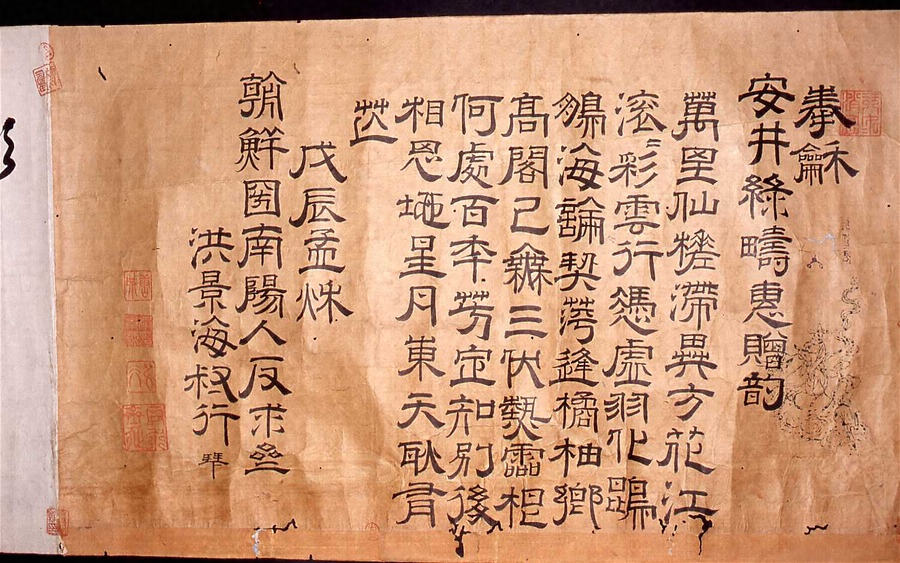 奉龢
安井綠疇惠贈韵
萬里仙槎滯異方花江
滾〻彩雲行憑虛羽化
鵬海論契萍逢橘柚鄉
高閣已無三伏熱靈
何處百年芳定知別後
相思地星月東天耿有
戊辰孟秋
朝鮮國南陽人反求
洪景海叔行